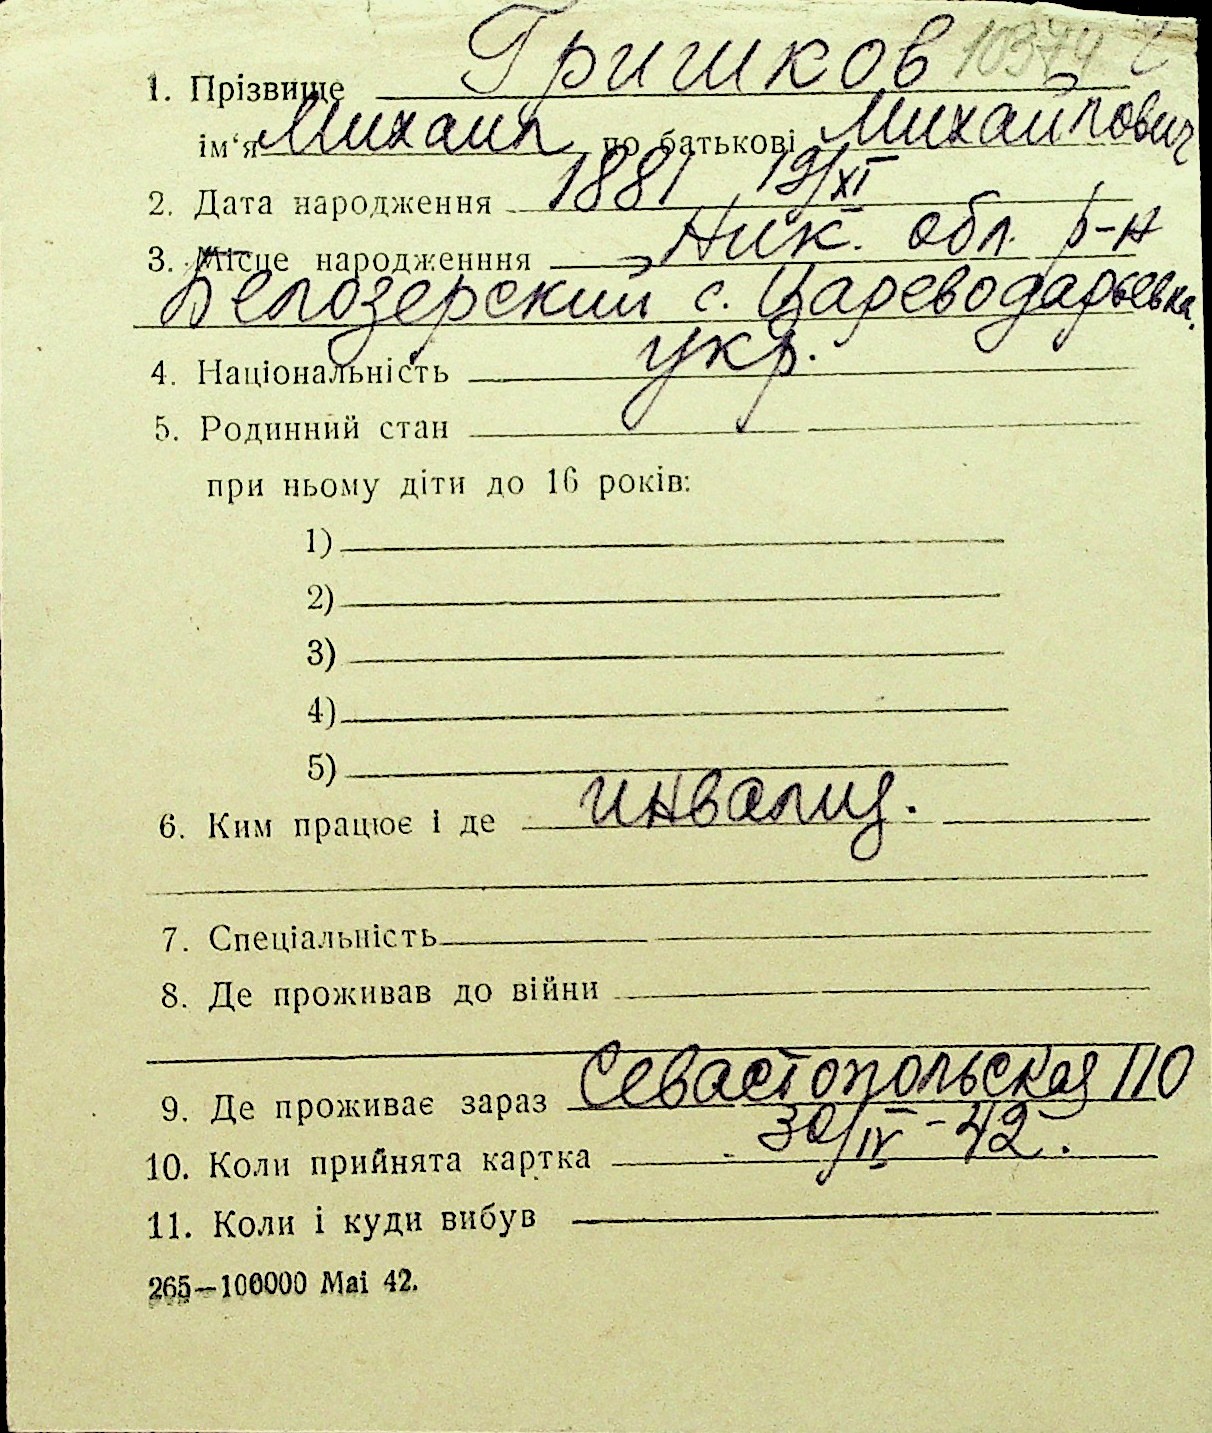 10374
1. Прізвище Гришков
ім‘я Михаил по батькові Михайлович
2. Дата народження 1881 19/XI
3. Місце народженння Ник. обл. р-н
Белозерский с. Цареводарьевка.
4. Національність укр.
5. Родинний стан
при ньому діти до 16 років:
1)
2)
3)
4)
5)
6. Ким працює і де инвалид.
7. Спеціальність
8. Де проживав до війни
9. Де проживає зараз Севастопольская 110
10. Коли прийнята картка 30/IV-42.
11. Коли і куди вибув
265—100000 Mai 42.